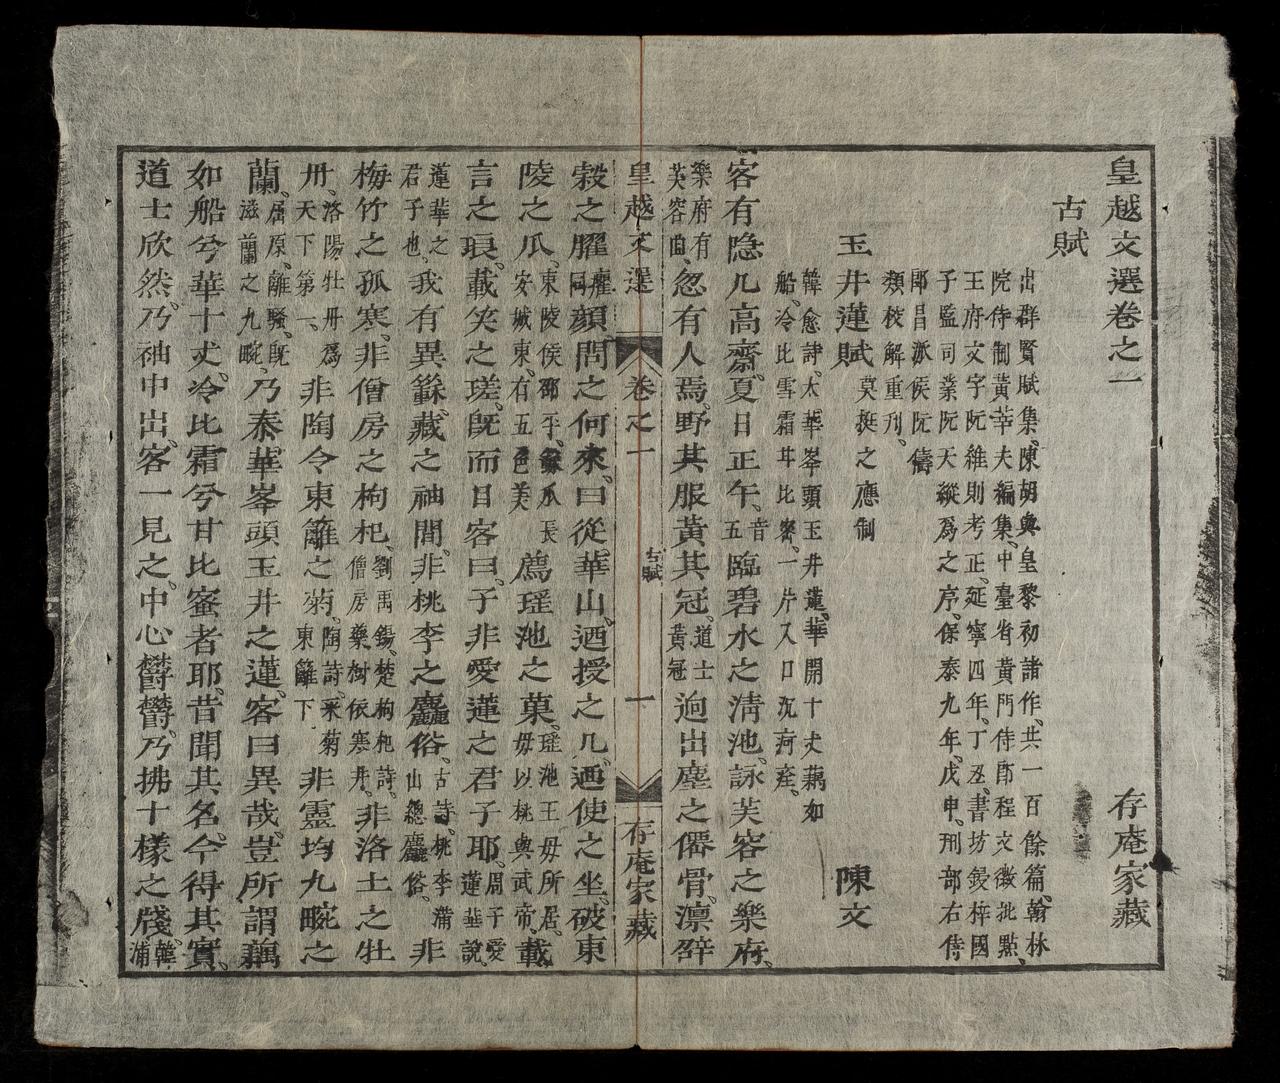 皇越文選卷之一　存庵家藏
古賦
出群賢賦集、陳胡與皇黎初諸作、共一百餘篇、翰林
院侍制黃莘夫編集、中臺省黃門侍郎程文徽批點、
王府文字阮維則考正、延寧四年、丁丑、書坊鋟梓國
子監司業阮天縱爲之序、保泰九年、戊申、刑部右侍
郎昌派侯阮儔
類校解重刊、
玉井蓮賦　莫挺之應制　陳文
韓愈詩、太華峯頭玉井蓮、華開十丈藕如
船、冷比雪霜甘比蜜、一片入口沉痾痊、
客有隐几高齋、夏日正午、音五臨碧水之淸池、詠芙容之樂府、
樂府有芙容曲、忽有人焉、野其服黃其冠、道士黃冠逈出塵之僊骨、凛辟
皇越文選　卷之一　古賦　一　存庵家藏
榖之臞顔、問之何來、曰從華山、迺授之几、迺使之坐、破東
陵之瓜、東陵侯邵平、種瓜長安城東、有五色美薦瑶池之菓、瑶池王母所居、母以桃與武帝、載
言之琅、載笑之瑳、旣而目客曰、子非愛蓮之君子耶、周子愛蓮說、
蓮華之君子也、我有異緐、藏之袖間、非桃李之麤俗、古詩、桃李滿山總麤俗、非
梅竹之孤寒、非僧房之枸杞、劉禹錫、楚枸杞詩、僧房藥樹依寒井、非洛土之牡
丹、洛陽、牡丹爲天下第一、非陶令東籬之菊、陶詩、采菊東籬下、非靈均九畹之
蘭、屈原、離騷、旣滋蘭之九畹、乃泰華峯頭玉井之蓮、客曰異哉、豈所謂藕
如船兮華十丈、冷比霜兮甘比蜜者耶、昔聞其名、今得其實、
道士欣然、乃袖中出、客一見之、中心鬱鬱、乃拂十樣之牋、韓浦